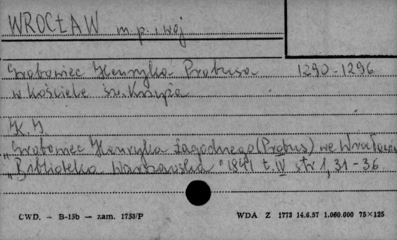 WROCŁAW m.p. i woj
Grobowiec Henryka Probusa 1290-1296
w Kościele św. Krzyża
K. J.
„Grobowiec Henryka Łagodnego (Probus) we Wrocławiu
„Biblioteka Warszawska" 1841 t. IV str 1, 31-36
CWD. — B-15b — zam. 1753/P WDA Z 1773 14.6.57 1.060.000 75×125